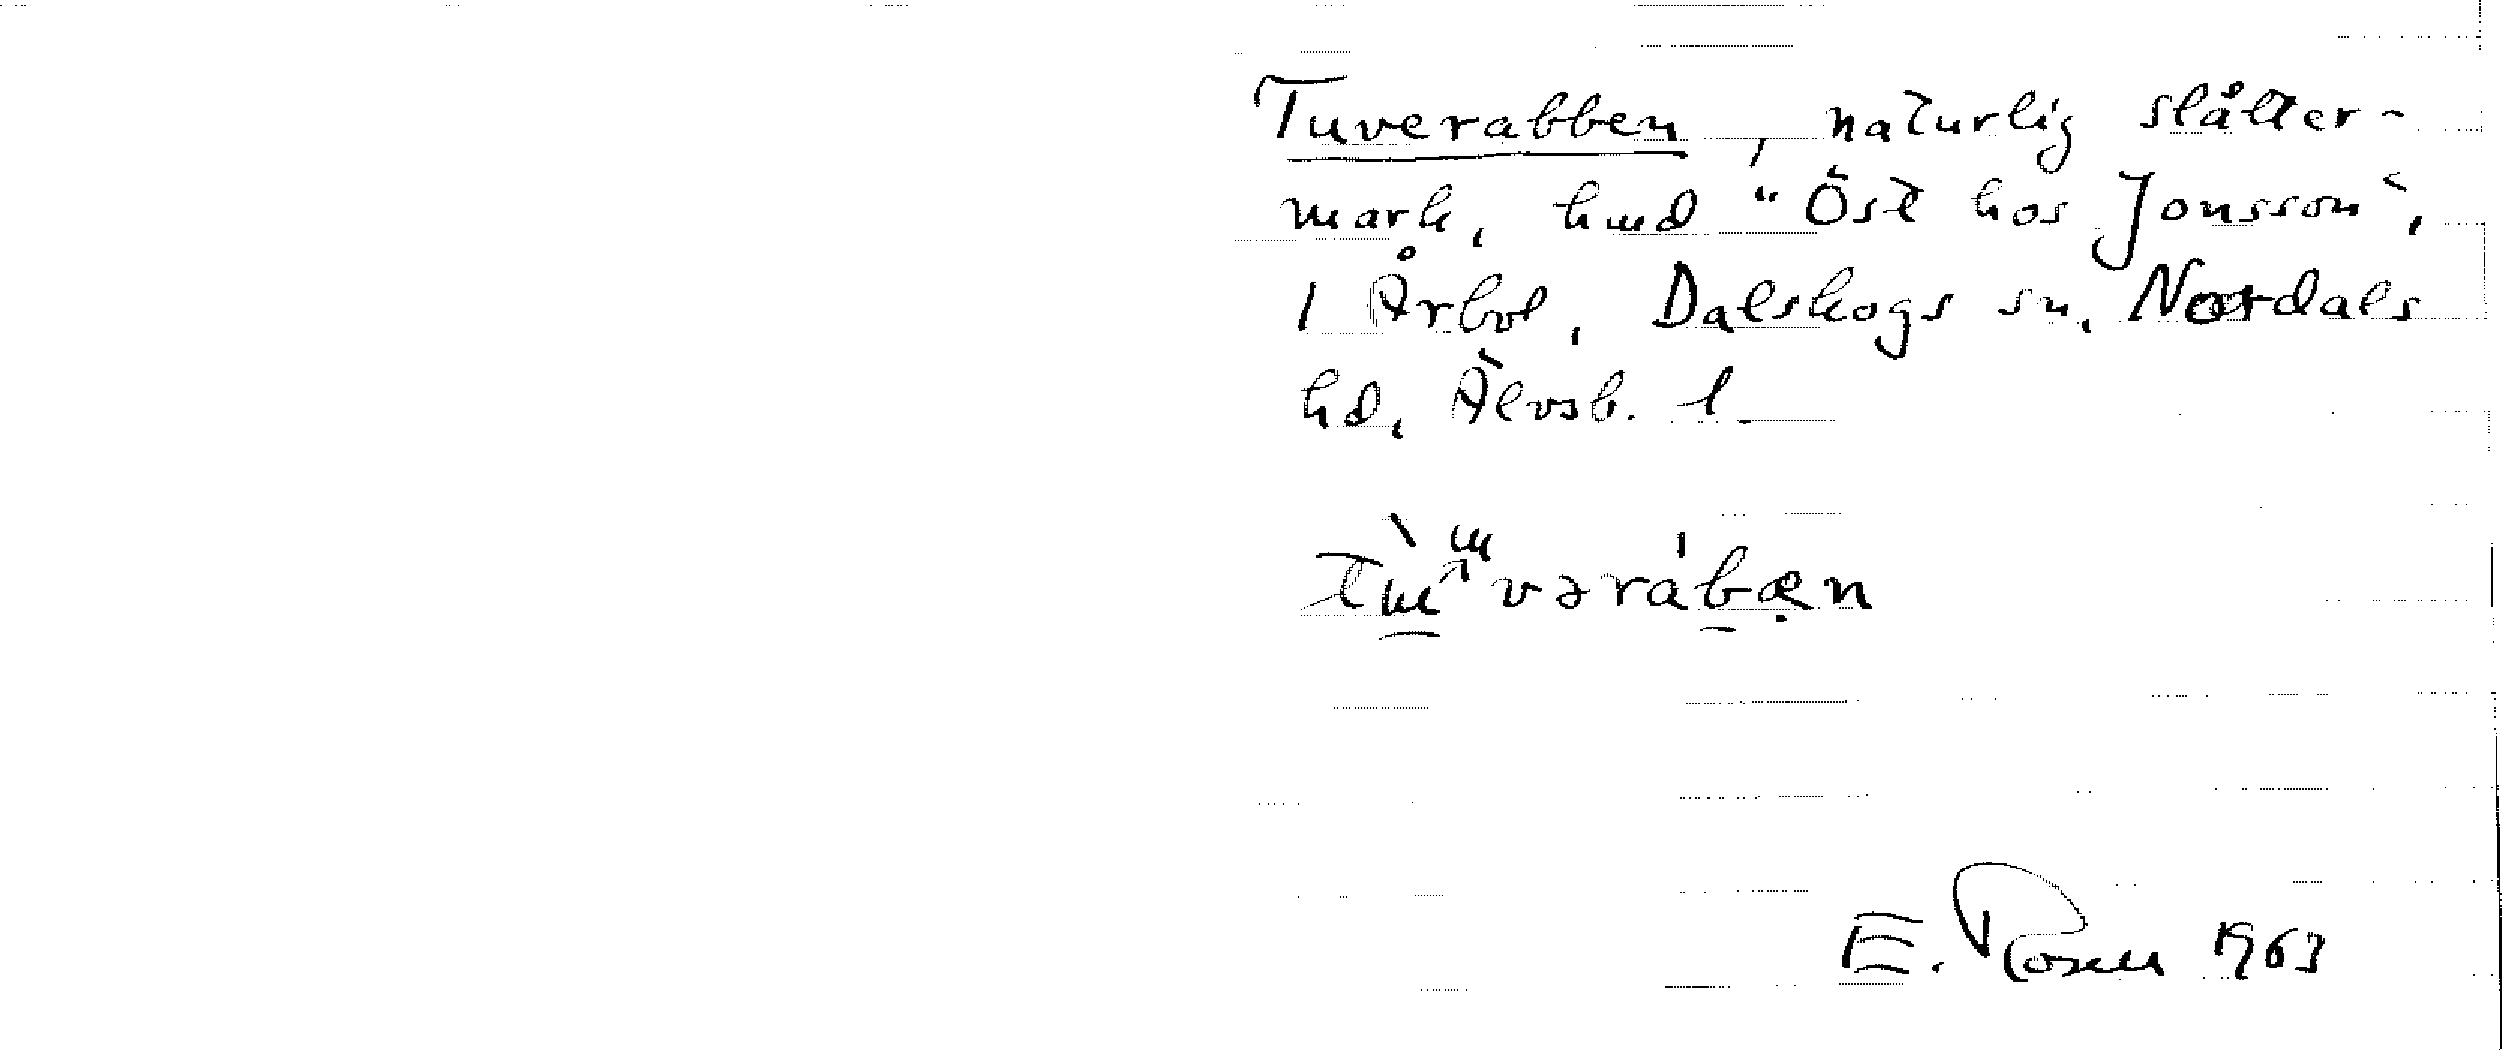 Tuverabben, naturlig slåtter-
mark, hmd "Öst hos Jonsson",
1 Årbol, Dalskogs sn, Nordals
hd, Älvsb. l.
E. Rosell 1963